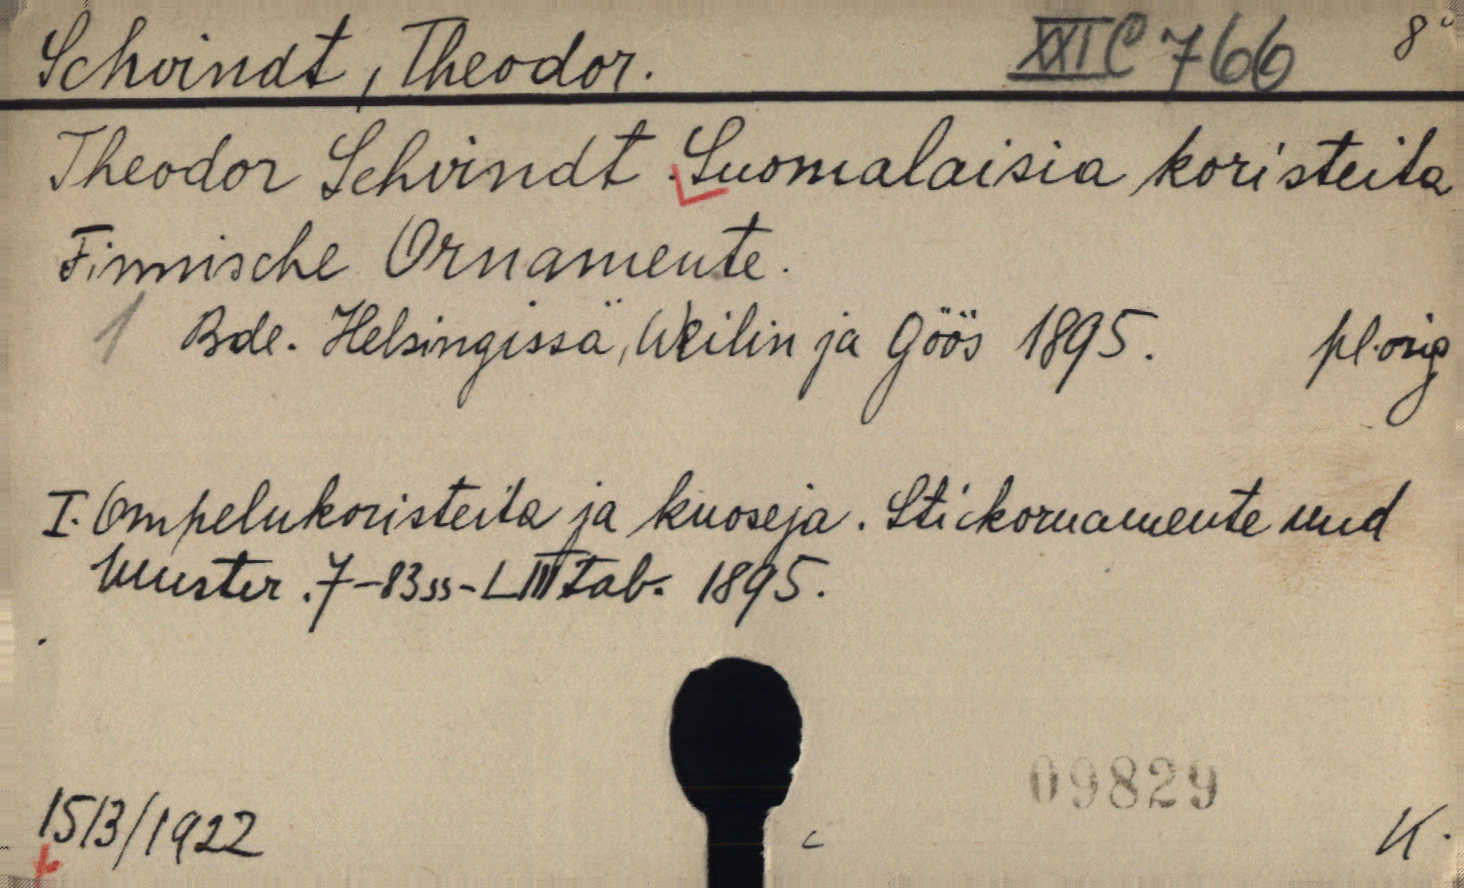 Schvindt, Theodor. XXI C 766 8°
Theodor Schvindt. Suomalaisia koristeita
Finnische Ornamente.
1 Bde. Helsingissä, Weilin ja Göös 1895. pl. orig
I. Ompelukoristeita ja kuoseja. Stickornamente und
Muster. 7-83 ss - LIII tab. 1895.
09829
1513/1922 K.